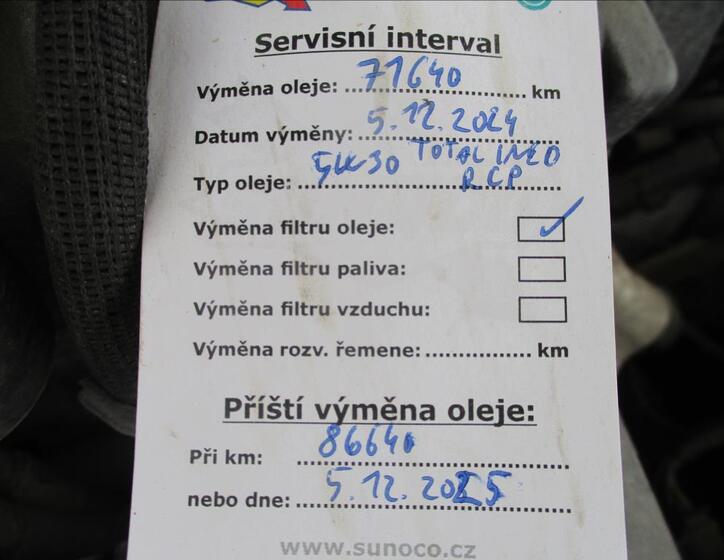 Servisní interval
Výměna oleje: 71640 km
Datum výměny: 5.12.2024
Typ oleje: 5W30 TOTAL INEO
RCP
Výměna filtru oleje: ✓
Výměna filtru paliva:
Výměna filtru vzduchu:
Výměna rozv. řemene: ............... km
Příští výměna oleje:
Při km: 86640
nebo dne: 5.12.2025
www.sunoco.cz